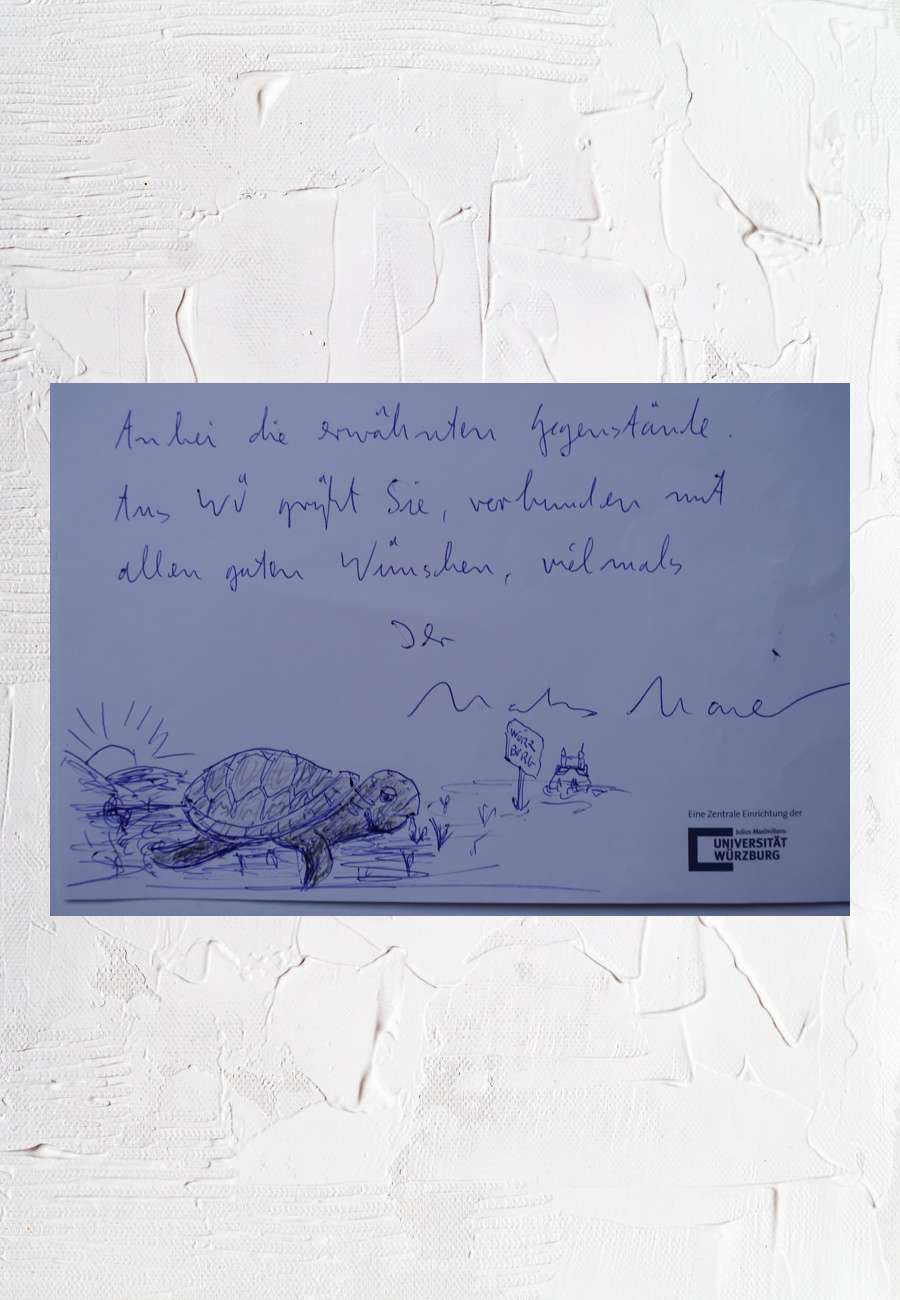 Anbei die erwähnten Gegenstände.
Aus WÜ grüßt Sie, verbunden mit
allen guten Wünschen, vielmals
Der
WÜRZ
BURG
Eine Zentrale Einrichtung der
Julius-Maximilians-
UNIVERSITÄT
WÜRZBURG